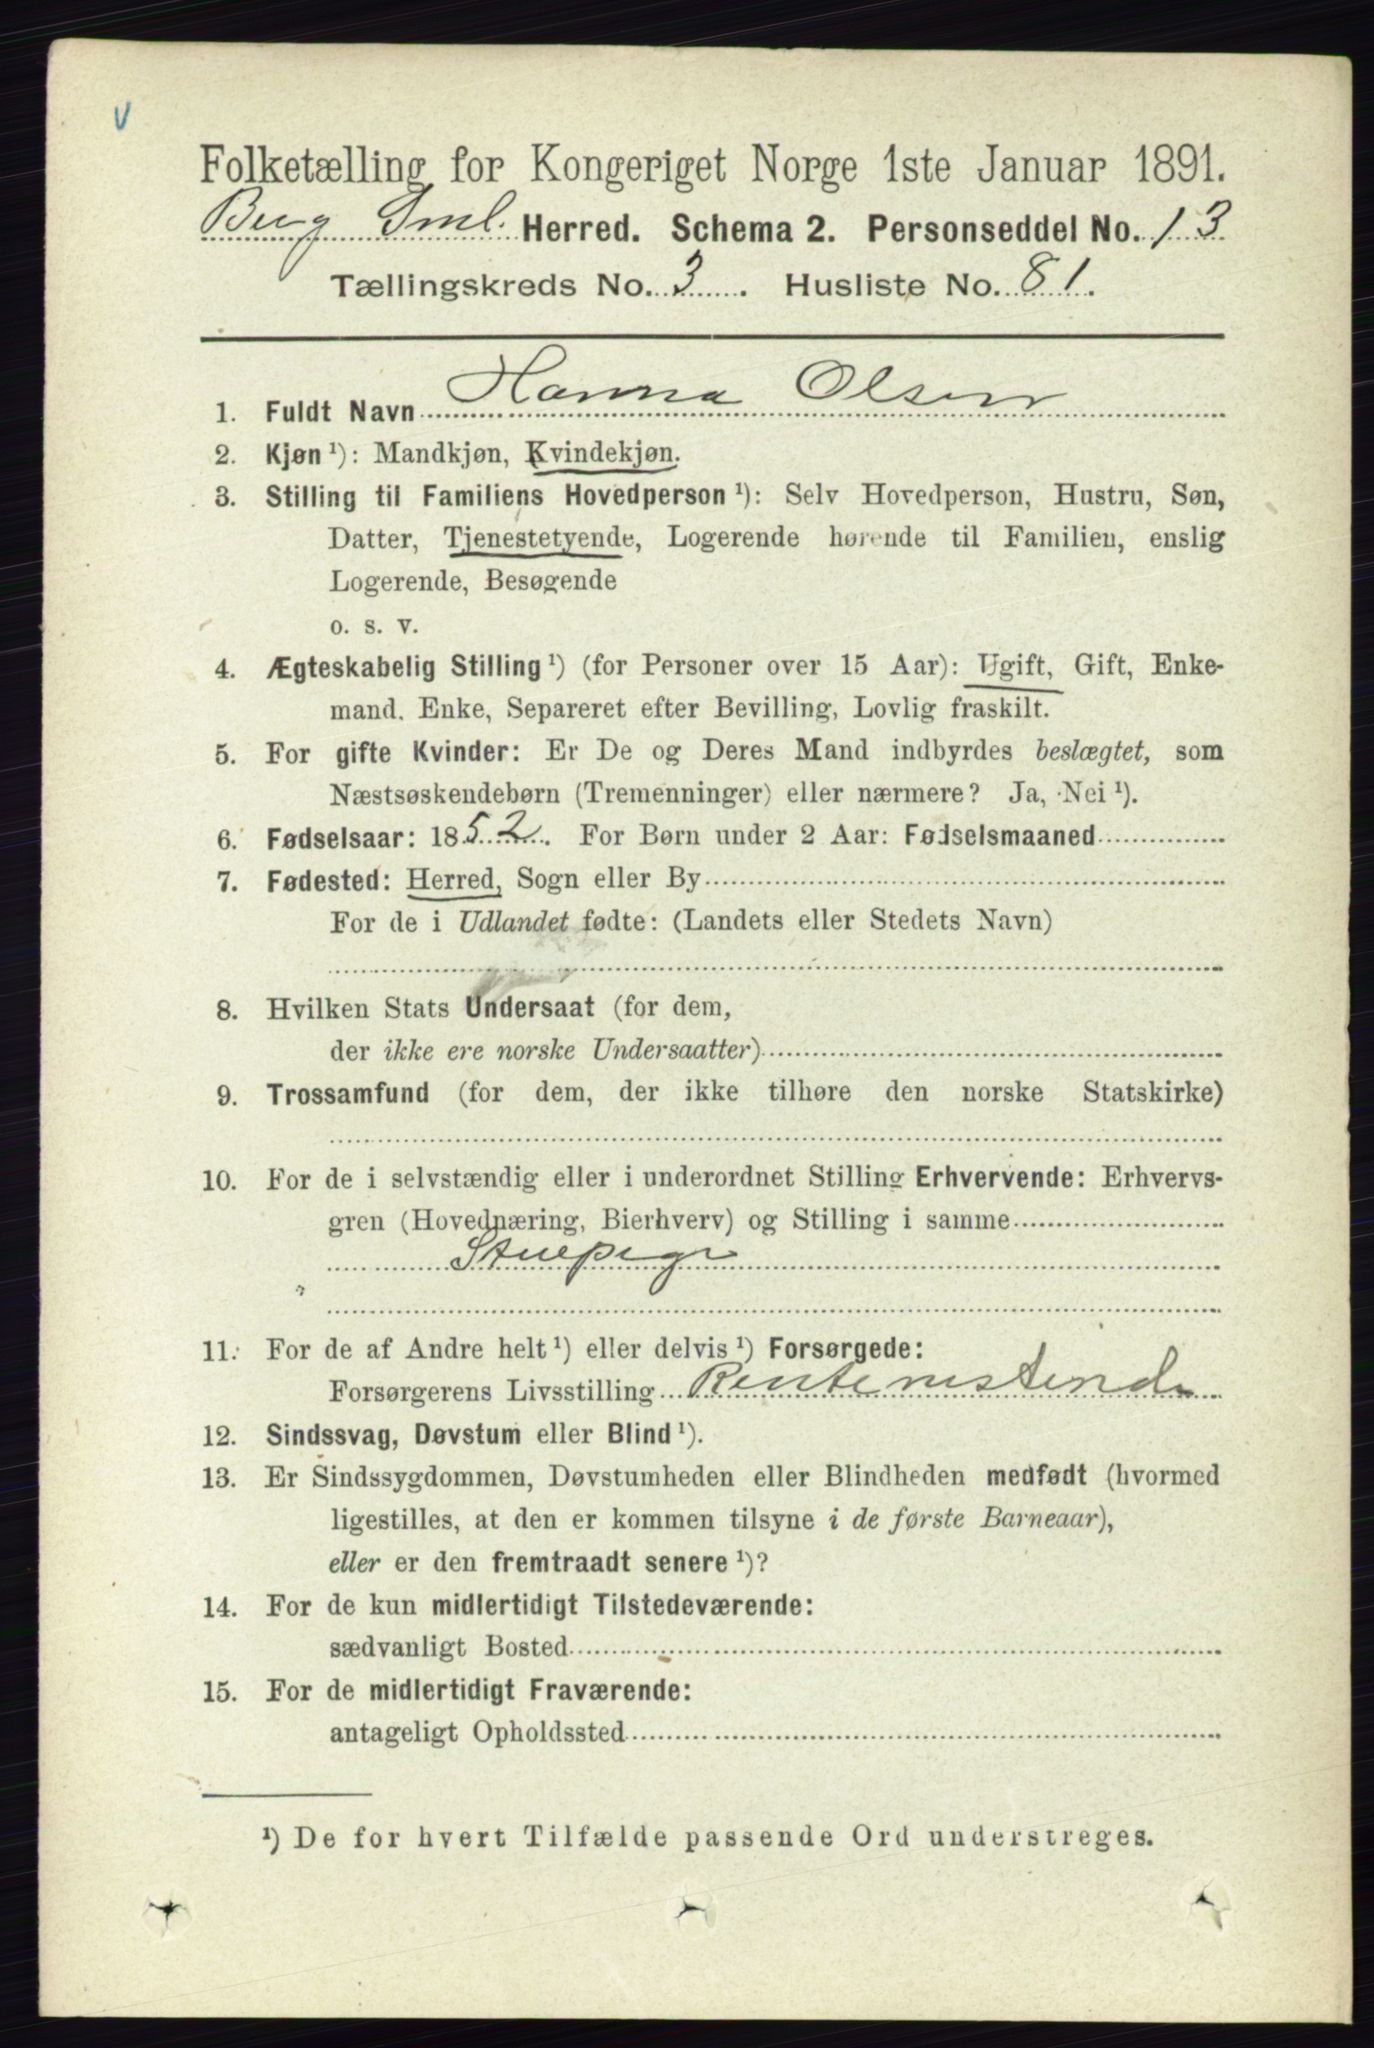 V
Folketælling for Kongeriget Norge 1ste Januar 1891.
Berg Sml. Herred. Schema 2. Personseddel No. 13
Tællingskreds No. 3. Husliste No. 81.
1. Fuldt Navn Hanna Olsen
2. Kjøn ¹): Mandkjøn, Kvindekjøn.
3. Stilling til Familiens Hovedperson ¹): Selv Hovedperson, Hustru, Søn,
Datter, Tjenestetyende, Logerende hørende til Familien, enslig
Logerende, Besøgende
o. s. v.
4. Ægteskabelig Stilling ¹) (for Personer over 15 Aar): Ugift, Gift, Enke-
mand. Enke, Separeret efter Bevilling, Lovlig fraskilt.
5. For gifte Kvinder: Er De og Deres Mand indbyrdes beslægtet, som
Næstsøskendebørn (Tremenninger) eller nærmere? Ja, Nei ¹).
6. Fødselsaar: 1852. For Børn under 2 Aar: Fødselsmaaned
7. Fødested: Herred, Sogn eller By
For de i Udlandet fødte: (Landets eller Stedets Navn)
8. Hvilken Stats Undersaat (for dem,
der ikke ere norske Undersaatter)
9. Trossamfund (for dem, der ikke tilhøre den norske Statskirke)
10. For de i selvstændig eller i underordnet Stilling Erhvervende: Erhvervs-
gren (Hovednæring, Bierhverv) og Stilling i samme
Stuepige
11. For de af Andre helt ¹) eller delvis ¹) Forsørgede:
Forsørgerens Livsstilling
12. Sindssvag, Døvstum eller Blind ¹).
13. Er Sindssygdommen, Døvstumheden eller Blindheden medfødt (hvormed
ligestilles, at den er kommen tilsyne i de første Barneaar),
eller er den fremtraadt senere ¹)?
14. For de kun midlertidigt Tilstedeværende:
sædvanligt Bosted
15. For de midlertidigt Fraværende:
antageligt Opholdssted
¹) De for hvert Tilfælde passende Ord understreges.